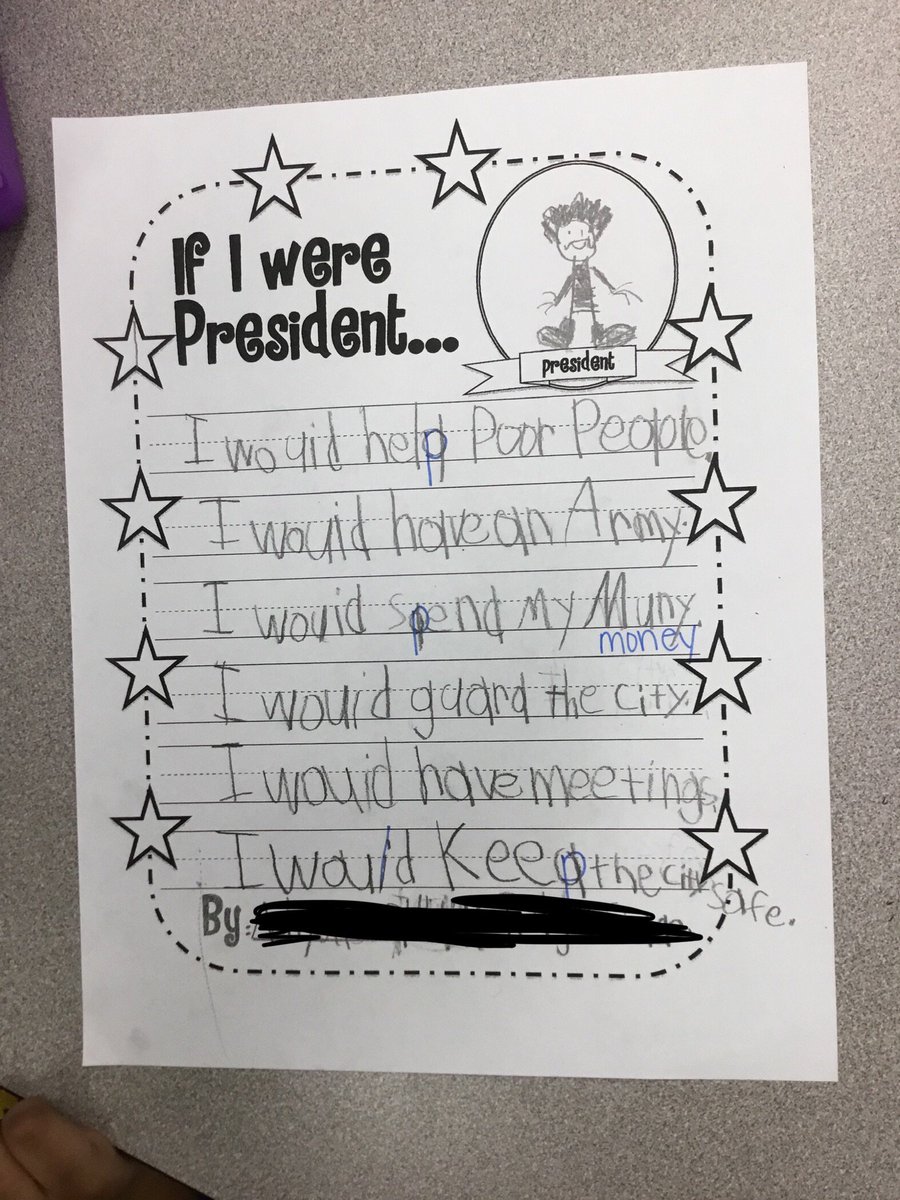 If I were
President...
president
I would help Poor People.
I would have an Army.
I would spend My Muny.
money
I would guard the city.
I would have meetings.
I would Keep the city safe.
By